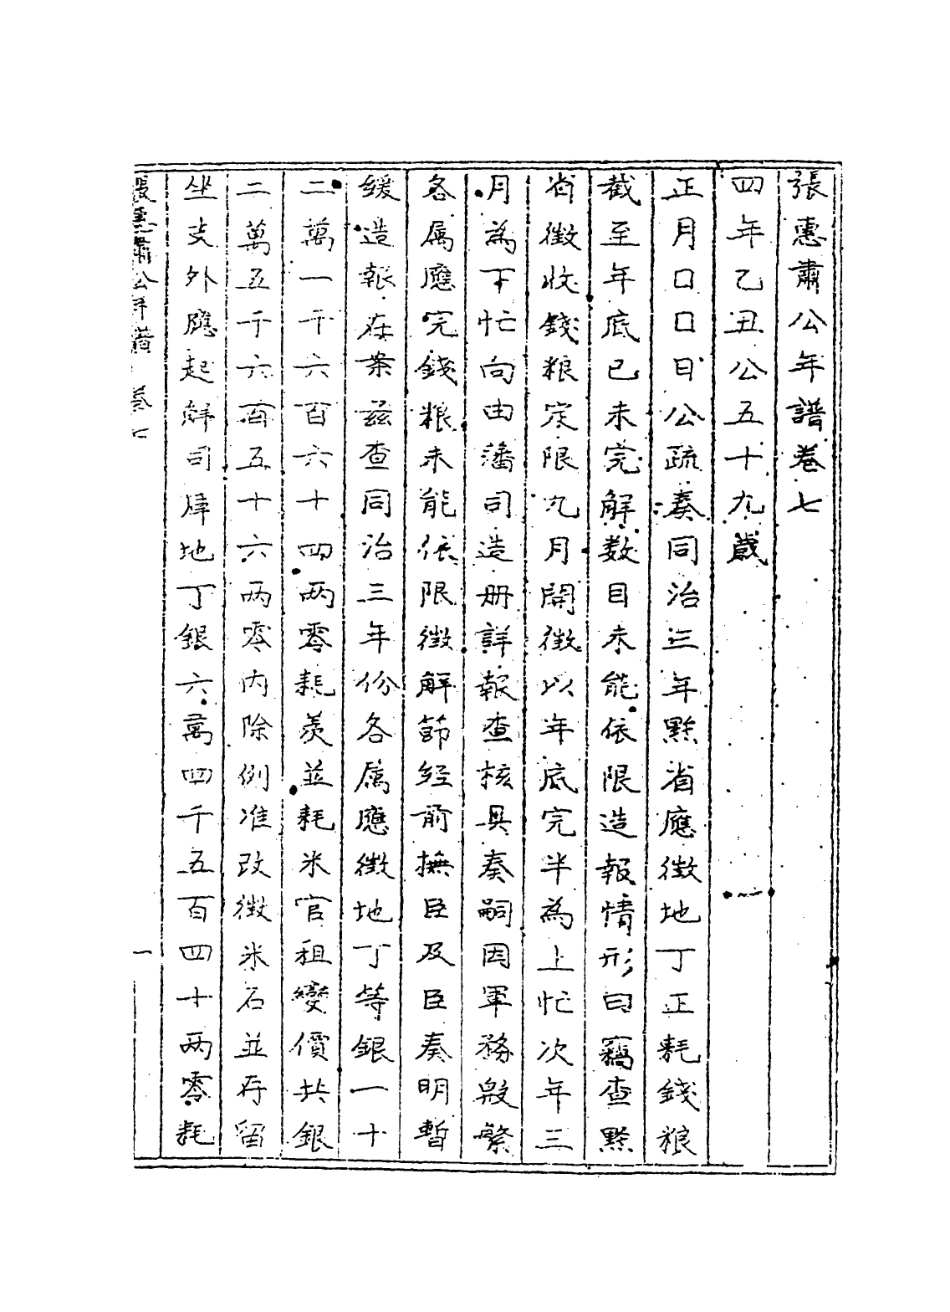 張惠肅公年譜卷七
四年乙丑公五十九歲
正月口口日公疏湊同治三年黔省應徵地丁正耗錢粮
截至年底已未完解数目未能依限造報情形曰竊查黔
省徵收錢粮定限九月開徵以年底完半為上忙次年三
月為下忙向由藩司造册詳報查核具奏嗣因軍務殷繁
各属應完錢粮未能依限徵解節経前撫臣及臣奏明暫
緩造報在案兹查同治三年份各属應徵地丁等銀一十
二萬一千六百六十四两零耗羡並耗米官租變價共銀
二萬五千六百五十六两零内除例准改徵米石並存留
坐支外應起解司庫地丁銀六萬四千五百四十两零耗
張惠肅公年譜 卷七
一